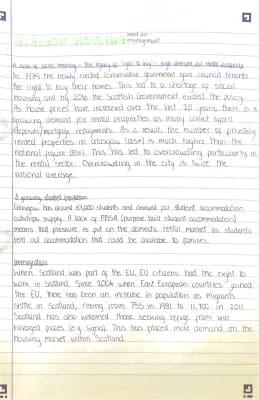 need for
management
A lack of social housing - the legacy of 'right to buy' - high demand for rental property
In 1979 the newly elected conservative government gave council tenants
the right to buy their homes. This led to a shortage of social
housing and by 2016 the Scottish Government ended the policy.
As house prices have increased over the last 20 years, there is a
growing demand for rental properties as many cannot afford
deposits/mortgage repayments. As a result, the number of privately
rented properties in Glasgow is much higher than the
national figure (15%). This has led to overcrowding particularly in
the rental sector. Overcrowding in the city is twice the
national average.
A growing student population
Glasgow has around student accommodation
outstrips supply. A lack of PBSA (purpose built student accommodation)
means that pressure is put on the domestic rental market as students
rent out accommodation that could be available to families.
Immigration
When Scotland was part of the EU, EU citizens had the right to
work in Scotland. Since 2004 when East European countries joined
the EU, there has been an increase in population as migrants
settle in Scotland, rising from in 1981 to 11,700 in 2011
Scotland has also welcomed those seeking refuge from war
ravaged places (e.g Syria). This has placed more demand on the
housing market within Scotland.